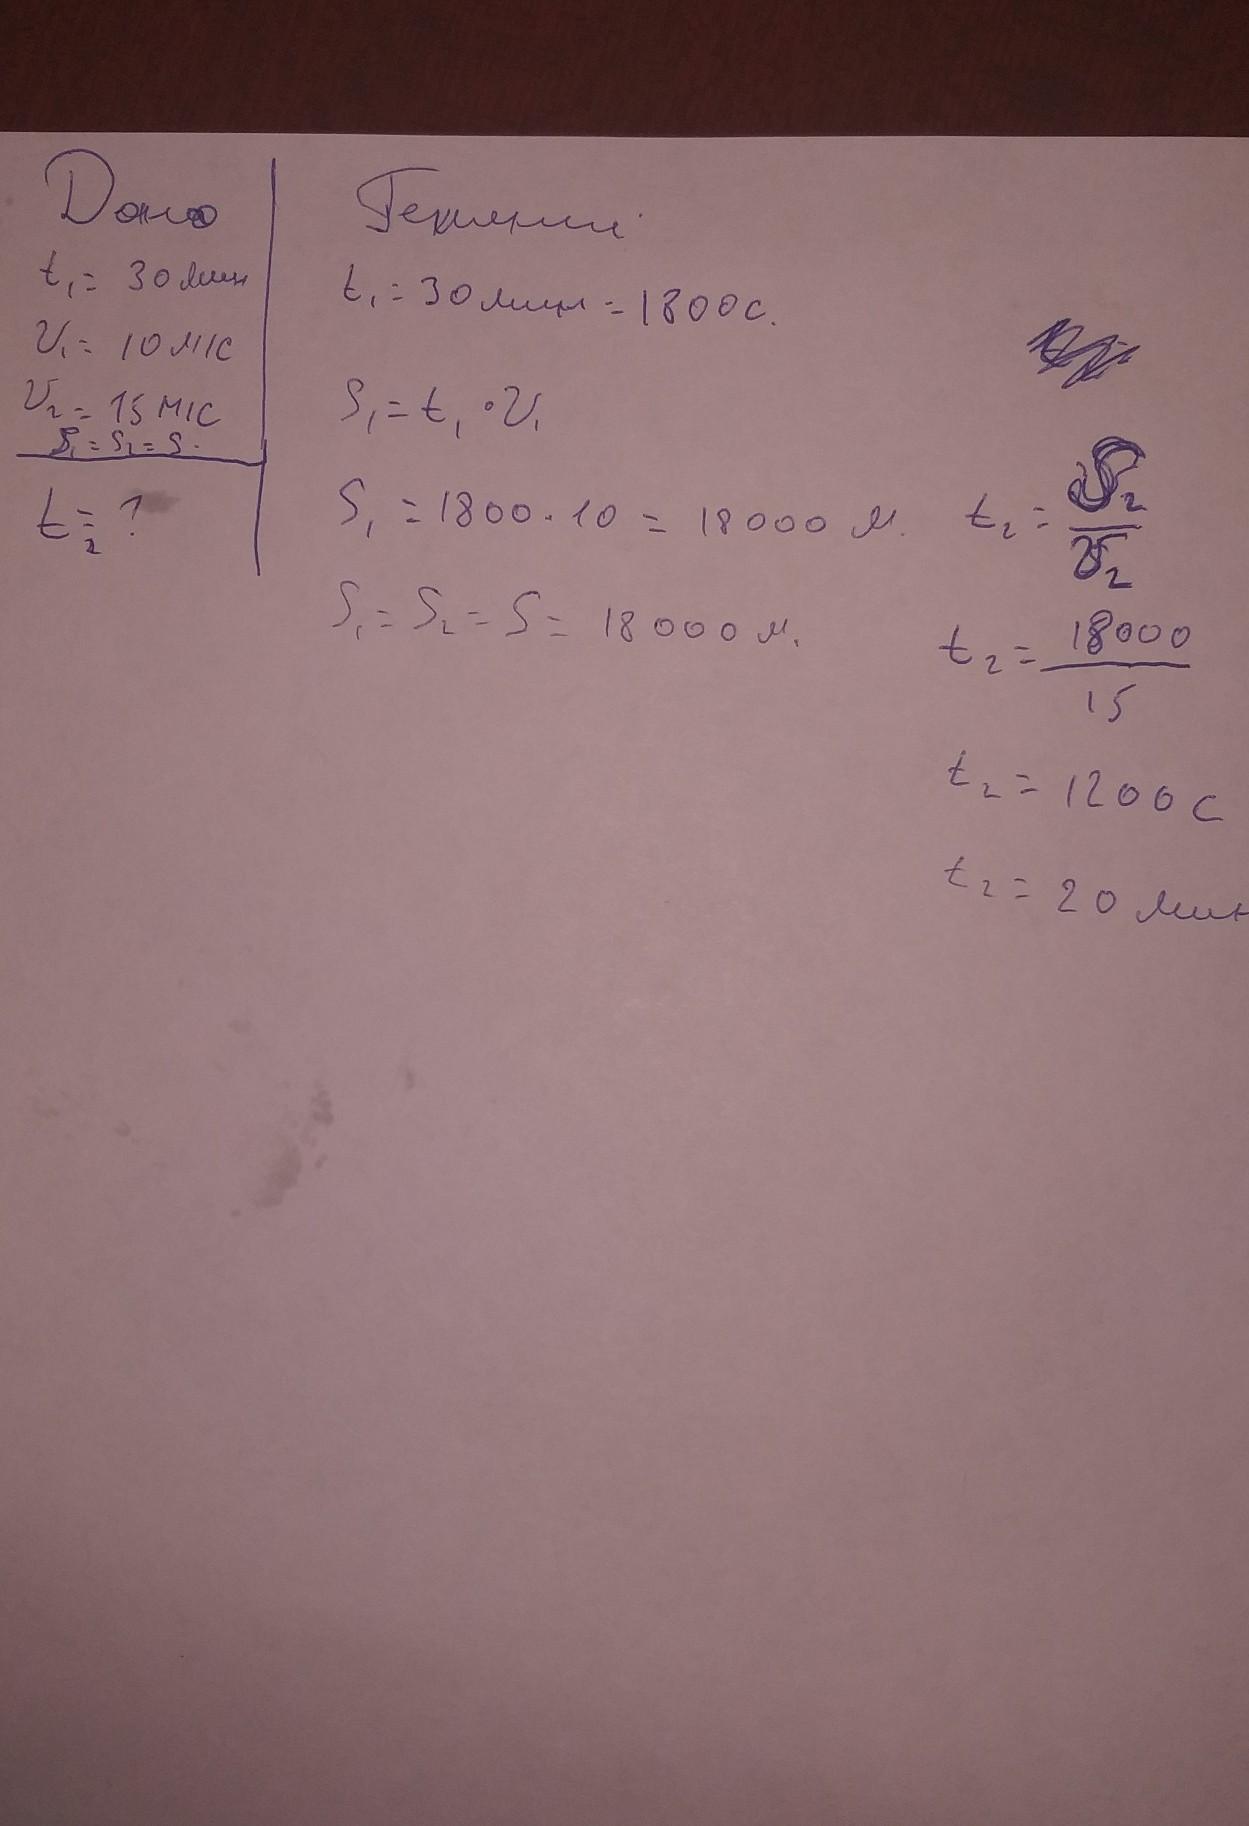 Дано
t₁ = 30 мин
V₁ = 10 м/с
V₂ = 15 м/с
S₁ = S₂ = S.
t₂ = ?
Решение
t₁ = 30 мин = 1800 с.
S₁ = t₁ · V₁
S₁ = 1800 · 10 = 18000 м.
S₁ = S₂ = S = 18000 м.
t₂ = S₂ / V₂
t₂ = 18000 / 15
t₂ = 1200 с
t₂ = 20 мин